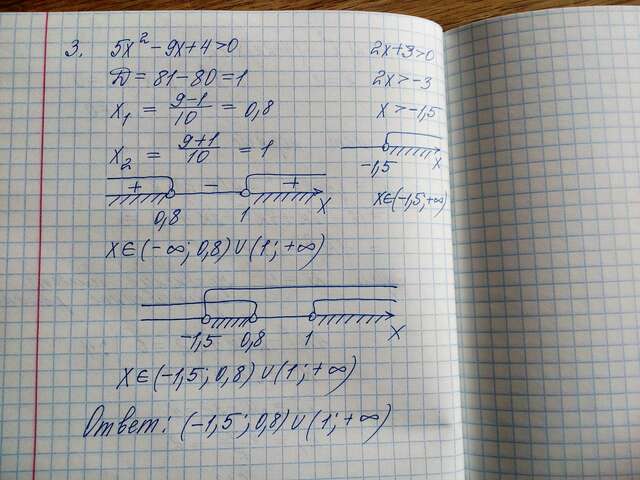 3. 5x² - 9x + 4 > 0
D = 81 - 80 = 1
x₁ = (9-1)/10 = 0,8
x₂ = (9+1)/10 = 1
+ - +
0,8 1 x
x ∈ (-∞; 0,8) ∪ (1; +∞)
2x + 3 > 0
2x > -3
x > -1,5
-1,5 x
x ∈ (-1,5; +∞)
-1,5 0,8 1 x
x ∈ (-1,5; 0,8) ∪ (1; +∞)
Ответ: (-1,5; 0,8) ∪ (1; +∞)